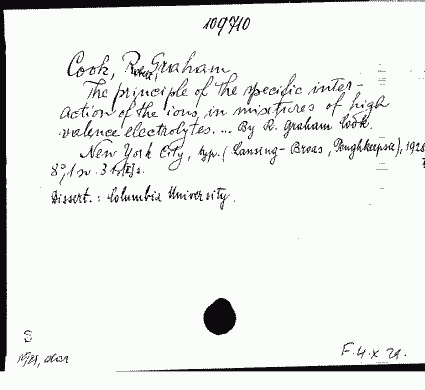 109710
Cook, R. Graham
The principle of the specific inter-
action of the ions, in mixtures of high
valence electrolytes. ... By R. Graham Cook.
New York City, typ. (Lansing-Broas, Poughkeepsie), 1928
8°, 1 v. 3
Dissert.: Columbia University.
F. 4. X 29.